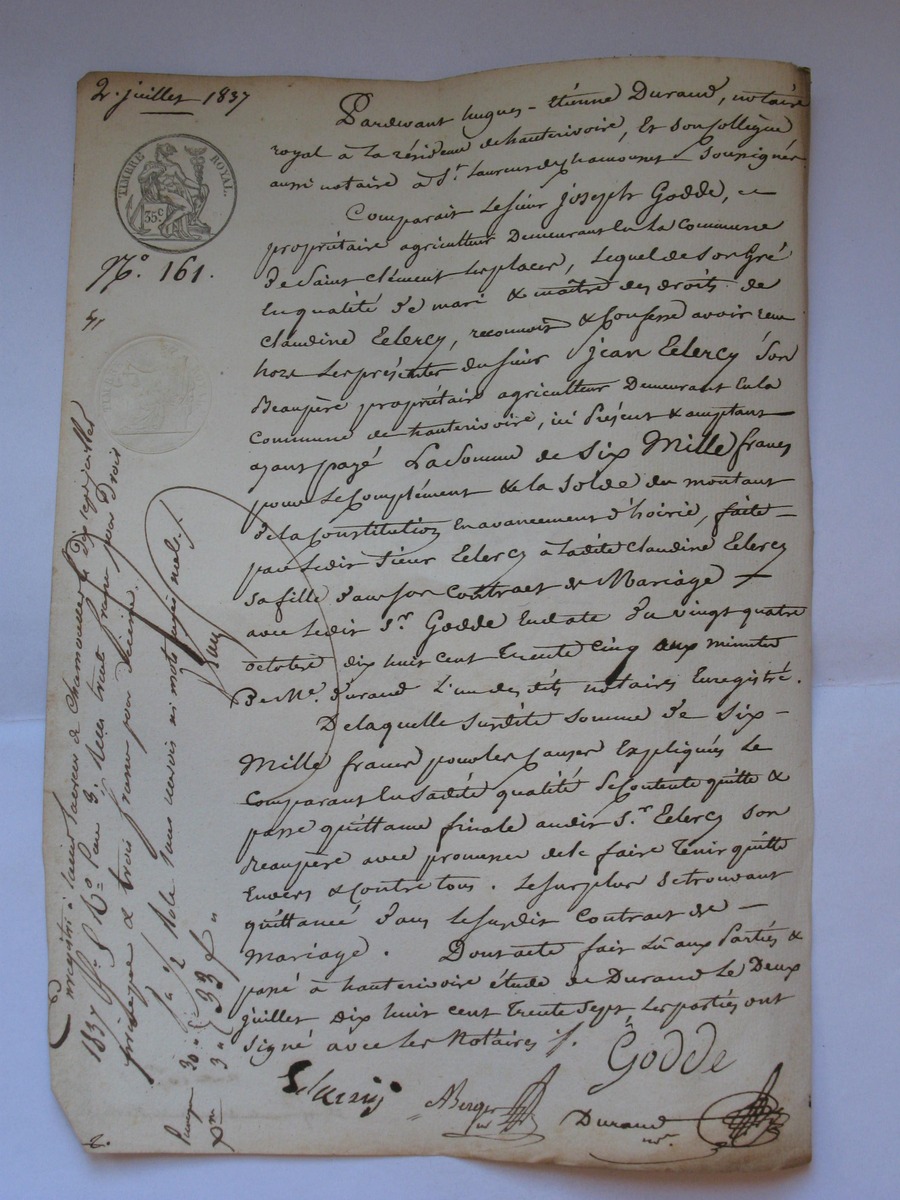 2. juillet 1837
TIMBRE ROYAL
35 c.
N.º 161.
Pardevant hugues-étienne Durand, notaire
royal à la résidence de hauterivoire, Et son Collègue
aussi notaire à S.t Laurent de chamousset Soussignés
Comparait le sieur Joseph Godde,
propriétaire agriculteur Demeurant En la Commune
de Saint Clément les places, lequel de son Gré
En qualité de mari & maître des droits de
Claudine Eclercy, reconnoit & Confesse avoir reçu
hors les présentes du sieur Jean Eclercy son
Beaupère propriétaire agriculteur Demeurant En la
Commune de hauterivoire, ici Présent & acceptant
ayant payé La Somme de Six Mille francs
pour Le Complément & la Solde du montant
de la Constitution En avancement d'hoirie, faite
par ledit Sieur Eclercy à ladite Claudine Eclercy
sa fille dans son Contract de Mariage
avec ledit S.r Godde En date du vingt quatre
octobre dix huit cent Trente Cinq aux minutes
De M.e Durand L'un des dits notaires Enregistré.
De laquelle Susdite somme de six
Mille francs pour les Causes Expliquées Le
Comparant En sadite qualité Se Contente quitte &
passe quittance finale audit S.r Eclercy son
Beaupère avec promesse de le faire Tenir quitte
Envers & Contre tous. Le surplus se trouvant
quittancé dans le susdit Contract de
Mariage. Dont acte fait Lu aux Parties &
passé à hauterivoire étude de Durand Le Deux
juillet dix huit cent Trente Sept, les parties ont
Signé avec les Notaires
Godde
ABerger
Durand
Enregistré à Saint Laurent de Chamousset le Dix sept juillet
1837 f.º R.º Case 3. Reçu trente francs pour Droit
principal & trois francs pour décime.
Role sans renvois ni mots rayés nuls
30
3
33 f